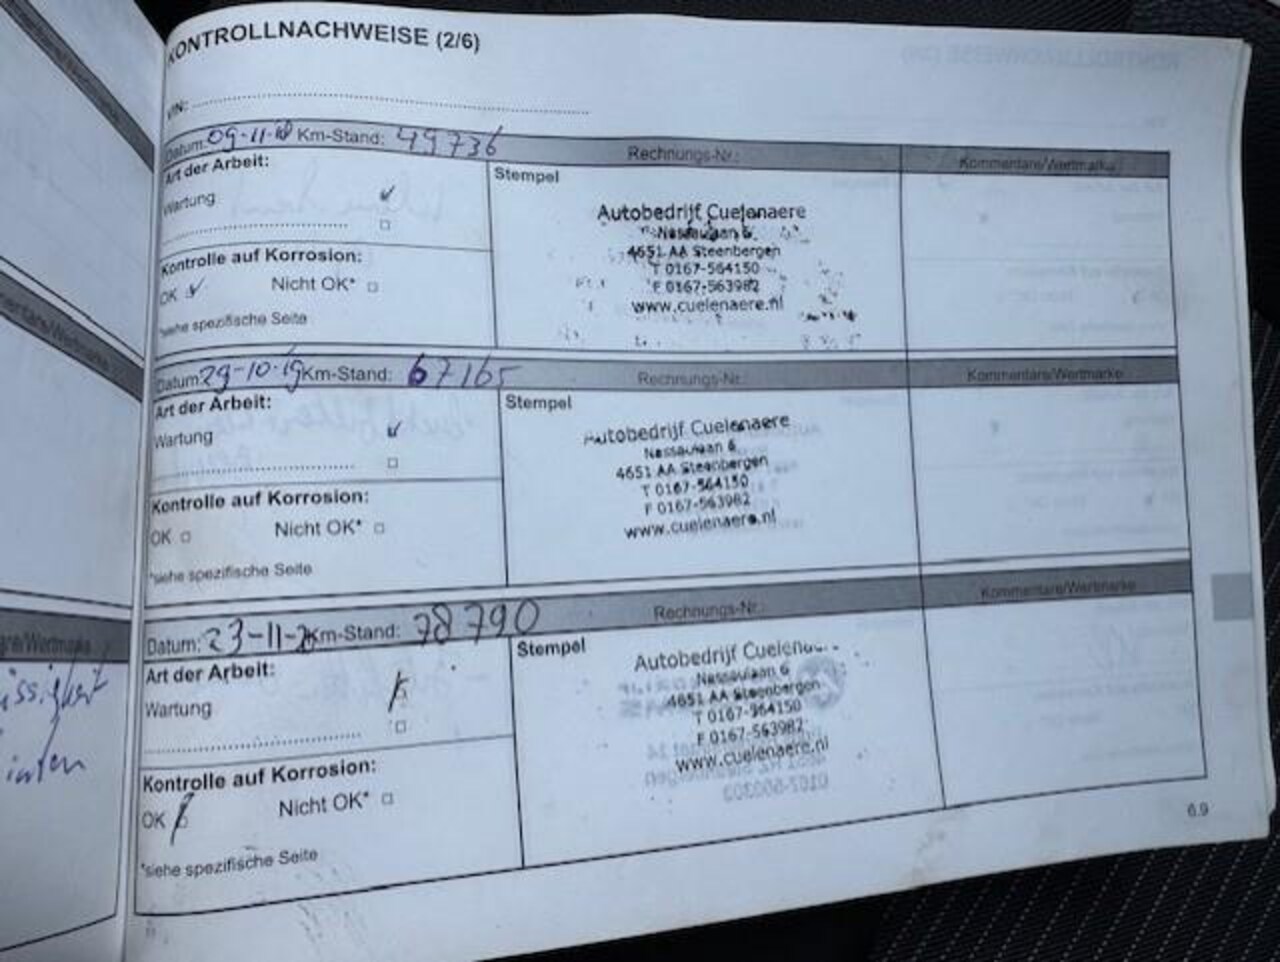 KONTROLLNACHWEISE (2/6)
VIN:
Datum: 09-11-18 Km-Stand: 49736 Rechnungs-Nr.: Kommentare/Wertmarke
Art der Arbeit:
Stempel
Wartung
Autobedrijf Cuelenaere
Nassaulaan 6
4651 AA Steenbergen
T 0167-564150
F 0167-563982
www.cuelenaere.nl
Kontrolle auf Korrosion:
OK Nicht OK*
*siehe spezifische Seite
Datum: 29-10-19 Km-Stand: 67165 Rechnungs-Nr.: Kommentare/Wertmarke
Art der Arbeit:
Stempel
Wartung
Autobedrijf Cuelenaere
Nassaulaan 6
4651 AA Steenbergen
T 0167-564150
F 0167-563982
www.cuelenaere.nl
Kontrolle auf Korrosion:
OK Nicht OK*
*siehe spezifische Seite
Datum: 23-11-20 Km-Stand: 78790 Rechnungs-Nr.: Kommentare/Wertmarke
Art der Arbeit:
Stempel
Wartung
Autobedrijf Cuelenaere
Nassaulaan 6
4651 AA Steenbergen
T 0167-564150
F 0167-563982
www.cuelenaere.nl
Kontrolle auf Korrosion:
OK Nicht OK*
*siehe spezifische Seite
6.9